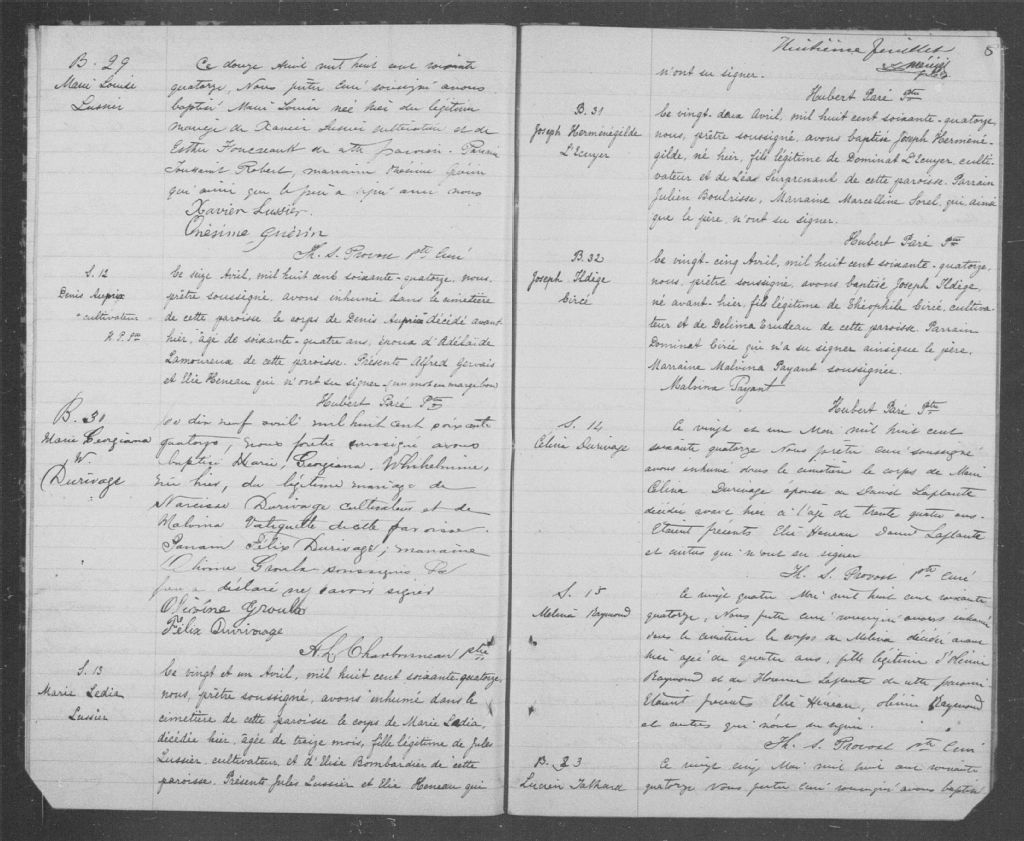 B. 29
Marie Louise
Lussier
Ce douze Avril mil huit cent soixante
quatorze, Nous prêtre Curé soussigné avons
baptisé Marie Louise née hier du légitime
mariage de Xavier Lussier cultivateur et de
Esther de cette paroisse. Parrain
Toussaint Robert, marraine
qui ainsi que le père a signé avec nous
Xavier Lussier.
Onésime Guérin
Th. S. Provost Ptre Curé
S. 12
Denis Auprix
cultivateur
H. P. Ptre
Ce seize Avril, mil huit cent soixante-quatorze, nous,
prêtre soussigné, avons inhumé dans le cimetière
de cette paroisse le corps de Denis Auprix décédé avant
hier, âgé de soixante-quatre ans, époux d'Adélaïde
Lamoureux de cette paroisse. Présents Alfred Gervais
et Elie Heneau qui n'ont su signer. (un mot en marge bon)
Hubert Paré Ptre
B. 30
Marie Georgiana
W.
Durivage
Ce dix neuf avril mil huit cent soixante
quatorze, Nous prêtre soussigné avons
baptisé Marie, Georgiana, Whilhelmine,
née hier, du légitime mariage de
Narcisse Durivage cultivateur et de
Malvina Vatiquette de cette paroisse.
Parrain Félix Durivage; marraine
Groulx soussignés Le
père a déclaré ne savoir signer
Groulx
Félix Durivage
A. L. Charbonneau ptre
S. 13
Marie Ledia
Lussier
Ce vingt et un Avril, mil huit cent soixante-quatorze,
nous, prêtre soussigné, avons inhumé dans le
cimetière de cette paroisse le corps de Marie Ledia,
décédée hier, âgée de treize mois, fille légitime de Jules
Lussier, cultivateur, et d'Elise Bombardier de cette
paroisse. Présents Jules Lussier et Elie Heneau qui
Huitième feuillet
8
n'ont su signer.
Hubert Paré Ptre
B. 31
Joseph Herménégilde
L'Ecuyer
Ce vingt-deux Avril, mil huit cent soixante-quatorze,
nous, prêtre soussigné, avons baptisé Joseph Hermené-
gilde, né hier, fils légitime de Dominat L'Ecuyer, culti-
vateur et de Léa Surprenant de cette paroisse. Parrain
Julien Boulrisse, Marraine Marcelline Sorel, qui, ainsi
que le père, n'ont su signer.
Hubert Paré Ptre
B. 32
Joseph Ildège
Circé
Ce vingt-cinq Avril, mil huit cent soixante-quatorze,
nous, prêtre soussigné, avons baptisé Joseph Ildège,
né avant-hier, fils légitime de Théophile Circé, cultiva-
teur et de Delima Trudeau de cette paroisse. Parrain
Dominat Circé qui n'a su signer ainsi que le père.
Marraine Malvina Payant soussignée.
Malvina Payant
Hubert Paré Ptre
S. 14
Célina Durivage
Ce vingt et un Mai mil huit cent
soixante quatorze Nous prêtre curé soussigné
avons inhumé dans le cimetière le corps de Marie
Célina Durivage épouse de David Laplante
décédée avant hier à l'âge de trente quatre ans.
Etaient présents Elie Heneau David Laplante
et autres qui n'ont su signer
Th. S. Provost Ptre Curé
S. 15
Melina Raymond
Ce vingt quatre Mai mil huit cent soixante
quatorze, Nous prêtre curé soussigné avons inhumé
dans le cimetière le corps de Melina décédée avant
hier agée de quatre ans, fille légitime d'Olivier
Raymond et de de cette paroisse
Etaient présents Elie Héneau, Olivier Raymond
et autres qui n'ont su signer.
Th. S. Provost Ptre Curé
B. 33
Lucien
Ce vingt cinq Mai mil huit cent soixante
quatorze Nous prêtre curé soussigné avons baptisé